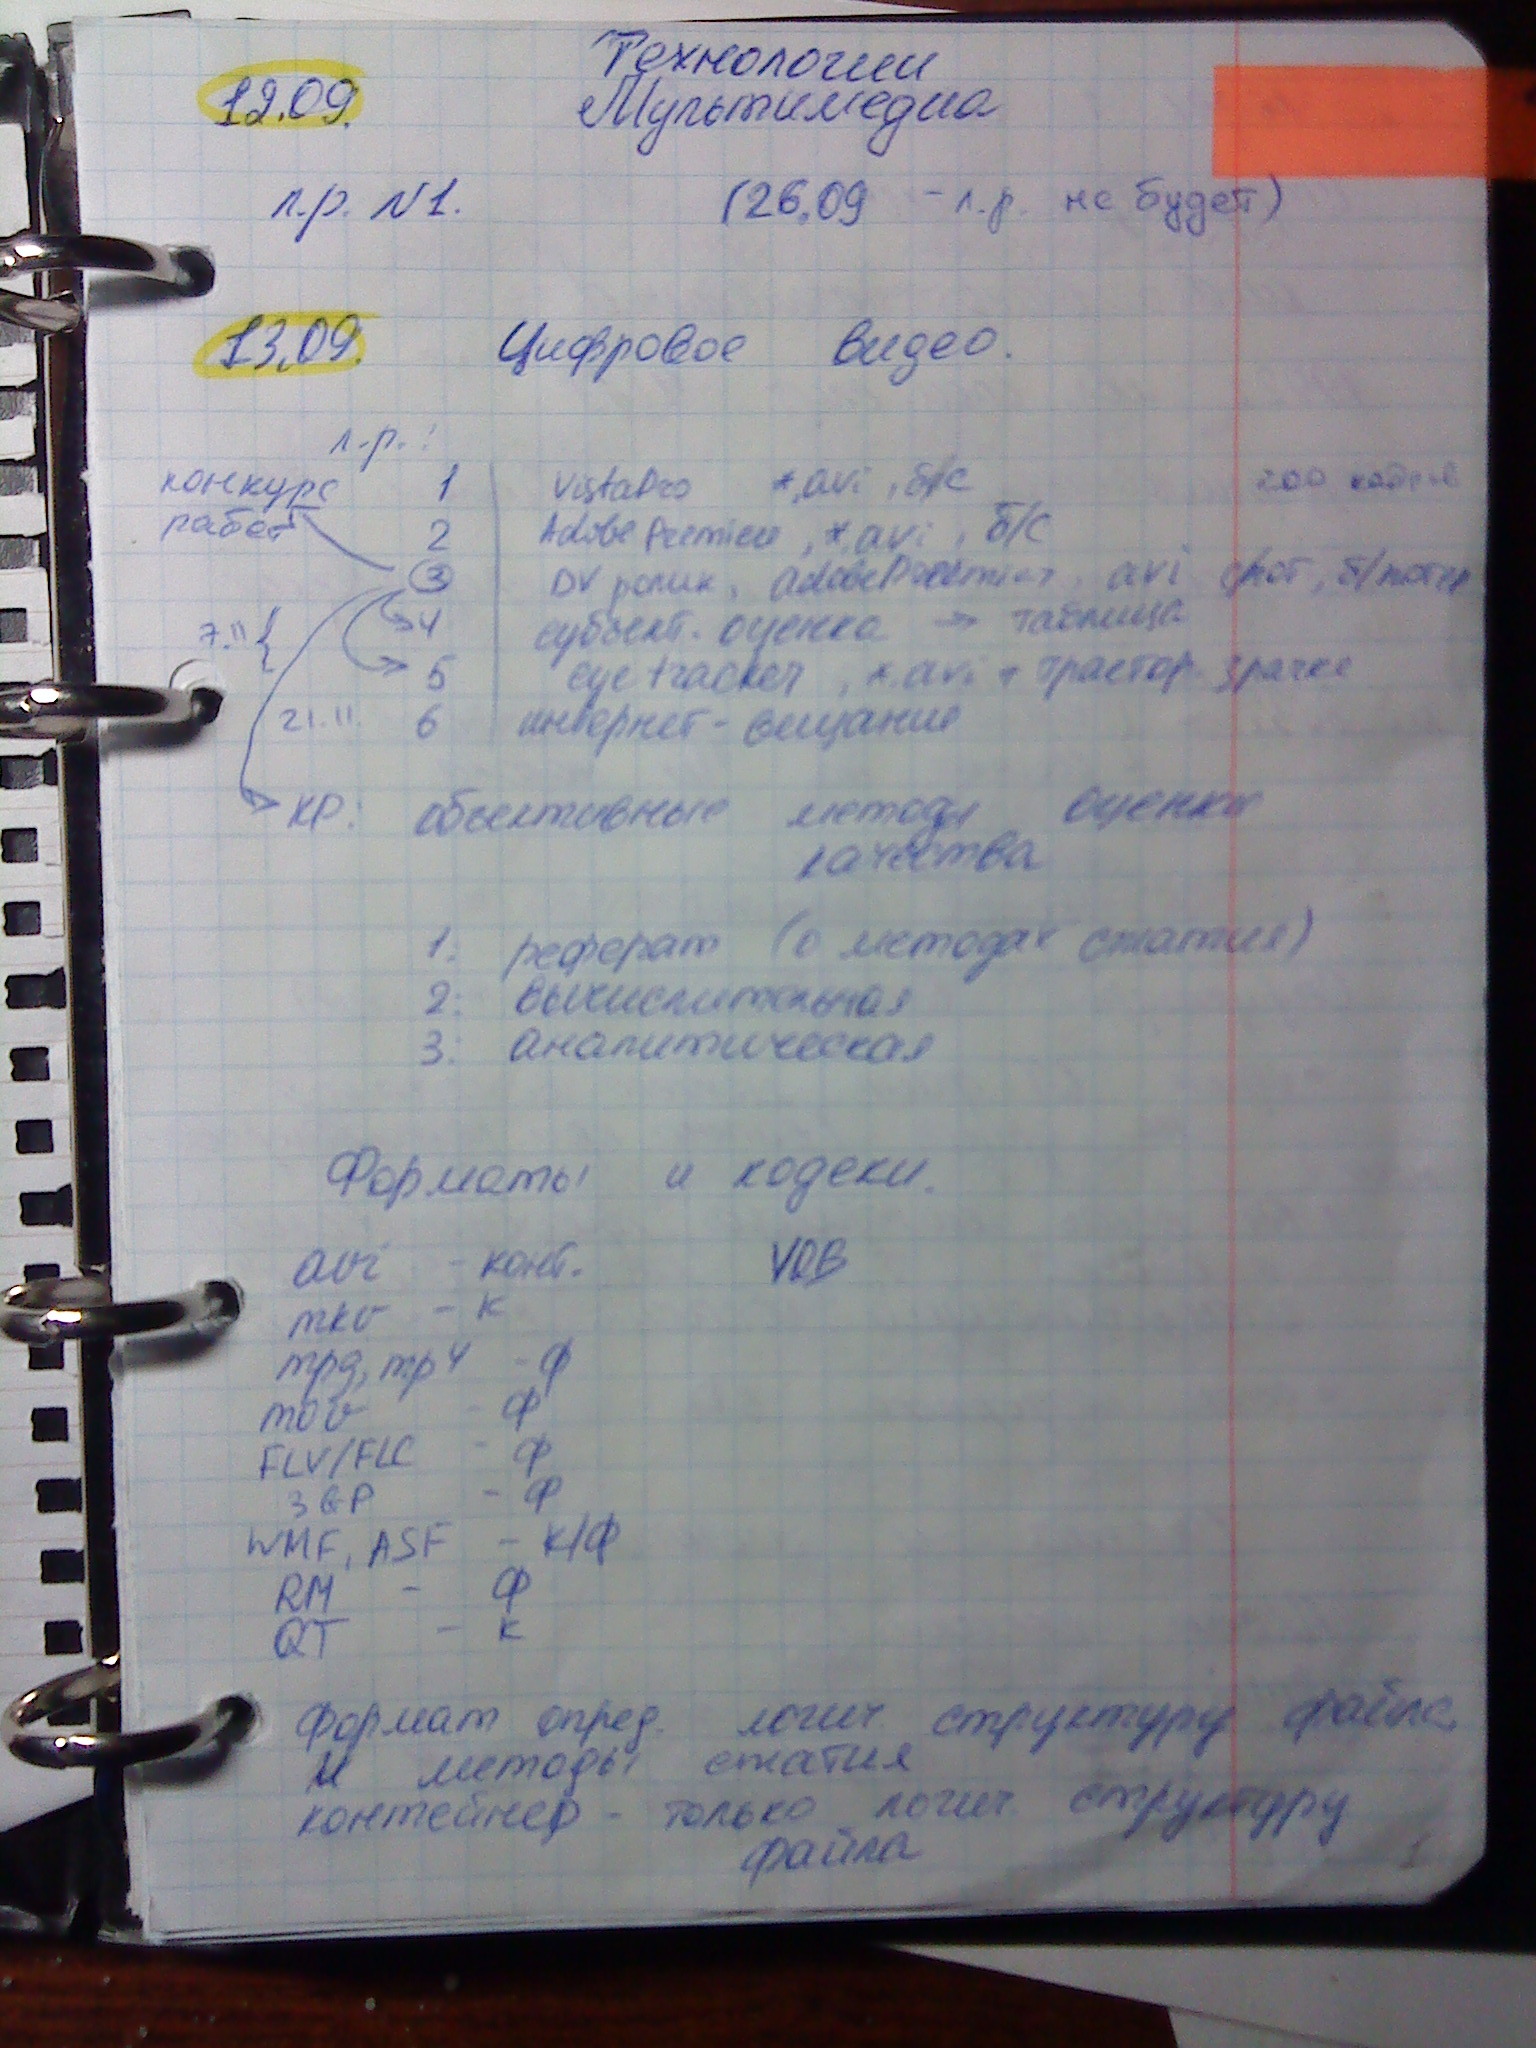 Технологии
12.09. Мультимедиа
л.р. №1. (26.09 - л.р. не будет)
13.09. Цифровое видео.
л.р.:
конкурс 1 VistaPro *.avi, б/с 200 кадров
работ 2 Adobe Premiere, *.avi, б/с
3 DV ролик, Adobe Premiere, avi б/потер
7.11 4 субъект. оценка → таблица
5 eyetracker, *.avi + зрачка
21.11. 6 интернет-вещание
КР: объективные методы оценки
качества
1. реферат (о методах сжатия)
2. вычислительная
3. аналитическая
Форматы и кодеки.
avi - конт. VOB
mkv - к
mpg, mp4 - ф
mov - ф
FLV/FLC - ф
3GP - ф
WMF, ASF - к/ф
RM - ф
QT - к
Формат опред. логич. структуру файла
и методы сжатия
контейнер - только логич. структуру
файла
1